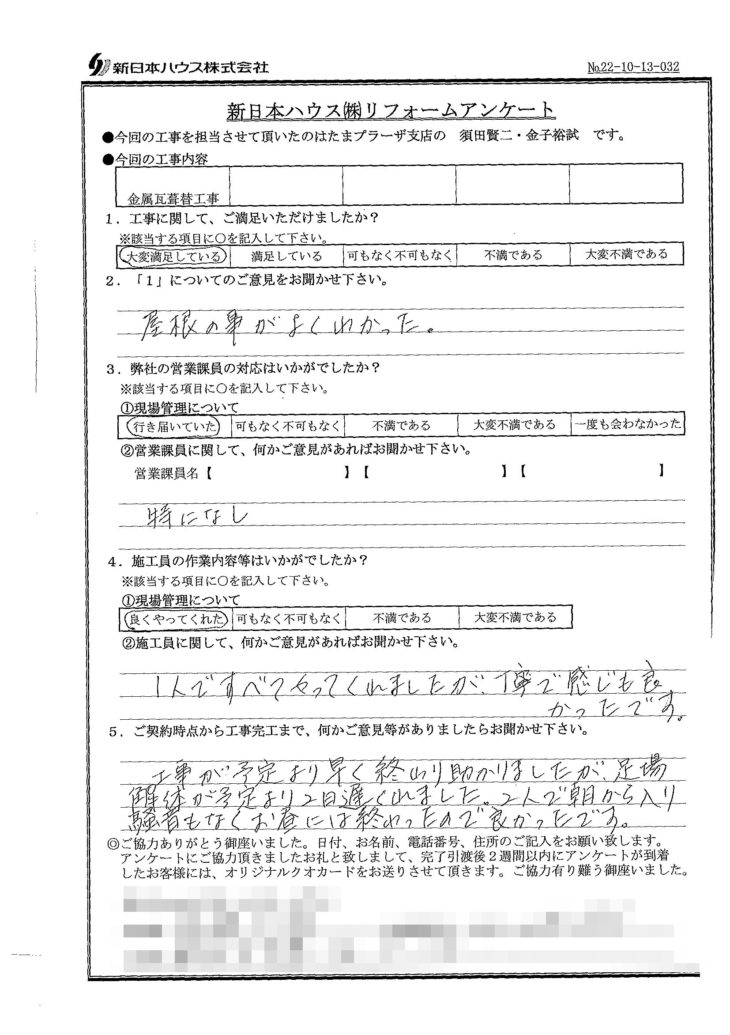 新日本ハウス株式会社
No.22-10-13-032
新日本ハウス㈱リフォームアンケート
●今回の工事を担当させて頂いたのはたまプラーザ支店の 須田賢二・金子裕試 です。
●今回の工事内容
金属瓦葺替工事
1．工事に関して、ご満足いただけましたか？
※該当する項目に○を記入して下さい。
大変満足している 満足している 可もなく不可もなく 不満である 大変不満である
2．「1」についてのご意見をお聞かせ下さい。
屋根の事がよくわかった。
3．弊社の営業課員の対応はいかがでしたか？
※該当する項目に○を記入して下さい。
①現場管理について
行き届いていた 可もなく不可もなく 不満である 大変不満である 一度も会わなかった
②営業課員に関して、何かご意見があればお聞かせ下さい。
営業課員名【 】【 】【 】
特になし
4．施工員の作業内容等はいかがでしたか？
※該当する項目に○を記入して下さい。
①現場管理について
良くやってくれた 可もなく不可もなく 不満である 大変不満である
②施工員に関して、何かご意見があればお聞かせ下さい。
1人ですべてやってくれましたが、丁寧で感じも良
かったです。
5．ご契約時点から工事完工まで、何かご意見等がありましたらお聞かせ下さい。
工事が予定より早く終わり助かりましたが、足場
解体が予定より2日遅くれました。2人で朝から入り
騒音もなくお昼には終わったので良かったです。
◎ご協力ありがとう御座いました。日付、お名前、電話番号、住所のご記入をお願い致します。
アンケートにご協力頂きましたお礼と致しまして、完了引渡後2週間以内にアンケートが到着
したお客様には、オリジナルクオカードをお送りさせて頂きます。ご協力有り難う御座いました。